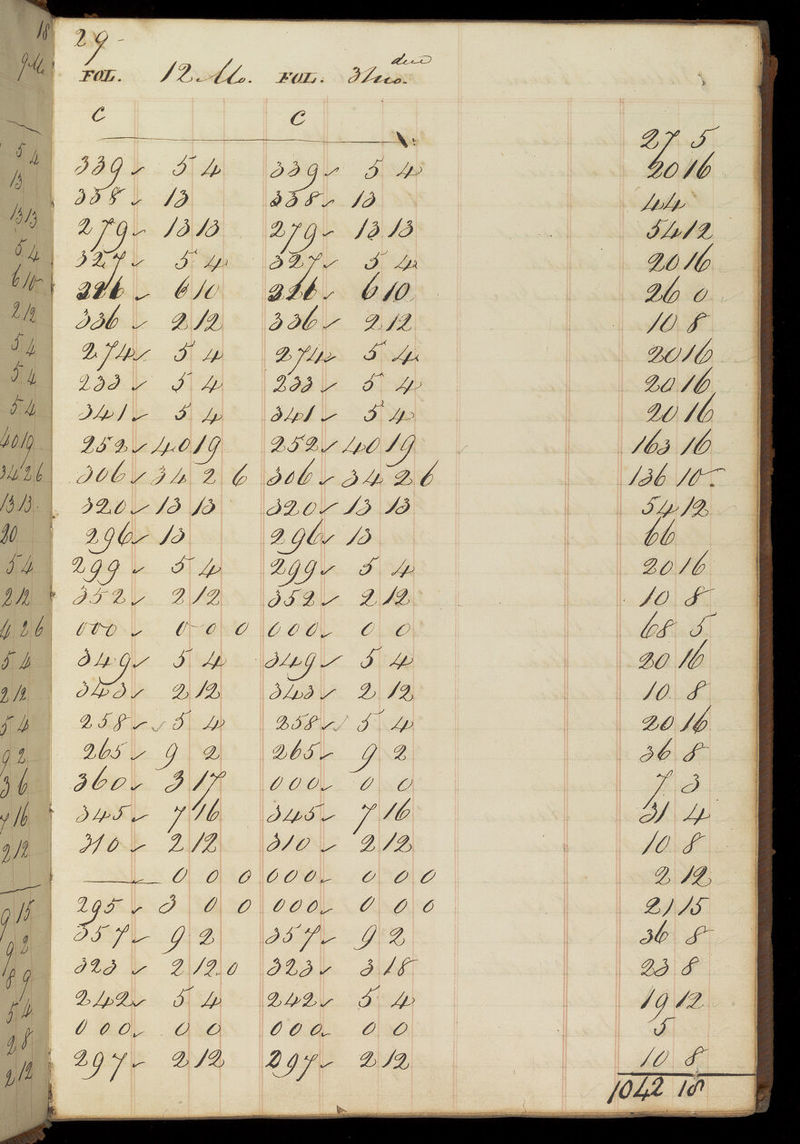 29-
due
FOL. 12 Mo. FOL. 3 Mo.
C C
27 5
339 5 4 339 5 4 20 16
338 13 338 13 44
279 13 13 279 13 13 54 12
327 5 4 327 5 4 20 16
326 6 10 326 6 10 26 0
336 2 12 336 2 12 10 8
274 5 4 274 5 4 20 16
233 5 4 233 5 4 20 16
341 5 4 341 5 4 20 16
252 40 19 252 40 19 163 16
306 34 2 6 306 34 2 6 136 10
320 13 13 320 13 13 54 12
296 13 296 13 66
299 5 4 299 5 4 20 16
352 2 12 352 2 12 10 8
000 0 0 0 000 0 0 68 5
349 5 4 349 5 4 20 16
343 2 12 343 2 12 10 8
258 5 4 258 5 4 20 16
265 9 2 265 9 2 36 8
360 3 17 000 0 0 7 3
345 7 16 345 7 16 31 4
310 2 12 310 2 12 10 8
0 0 0 000 0 0 0 2 12
295 3 0 0 000 0 0 0 21 15
357 9 2 357 9 2 36 8
323 2 12 0 323 3 18 23 8
242 5 4 242 5 4 19 12
000 0 0 000 0 0 5
297 2 12 297 2 12 10 8
1042 18